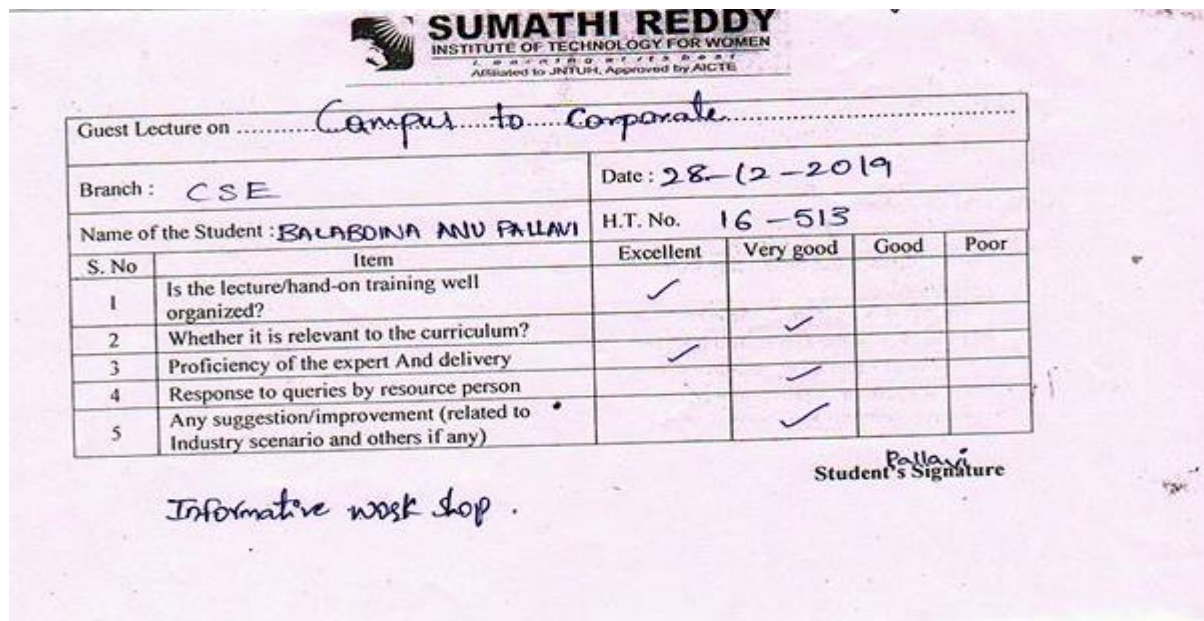 SUMATHI REDDY
INSTITUTE OF TECHNOLOGY FOR WOMEN
Learning at its best
Affiliated to JNTUH, Approved by AICTE
Guest Lecture on .......... Campus to Corporate ..........
Branch : CSE Date : 28-12-2019
Name of the Student : BALABOINA ANU PALLAVI H.T. No. 16-513
S. No Item Excellent Very good Good Poor
1 Is the lecture/hand-on training well
organized? ✓
2 Whether it is relevant to the curriculum? ✓
3 Proficiency of the expert And delivery ✓
4 Response to queries by resource person ✓
5 Any suggestion/improvement (related to
Industry scenario and others if any) ✓
Pallavi
Student's Signature
Informative work shop.